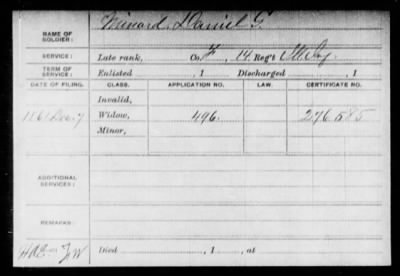 NAME OF SOLDIER: Minard, Daniel G.
SERVICE: Late rank, Co. F, 14. Reg't
TERM OF SERVICE: Enlisted , 1 Discharged , 1
DATE OF FILING. CLASS. APPLICATION NO. LAW. CERTIFICATE NO.
Invalid,
Widow, 496. 276.585
Minor,
ADDITIONAL SERVICES:
REMARKS:
Died , 1 , at